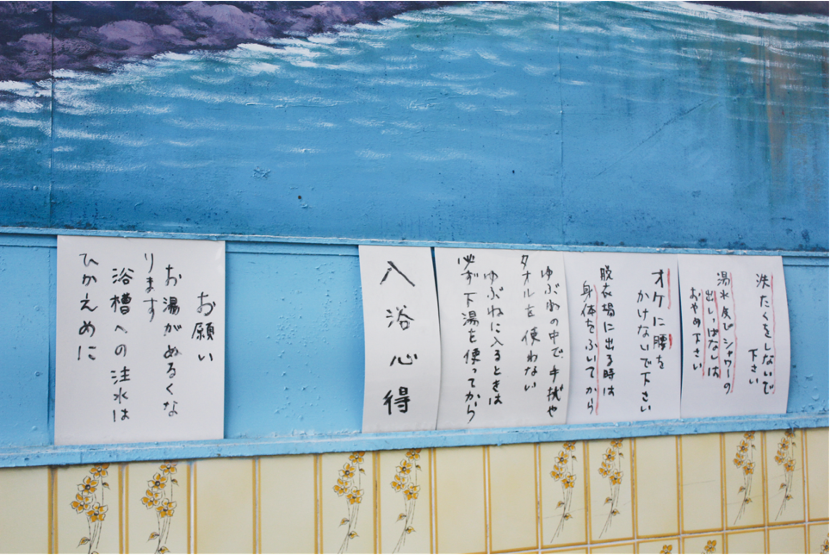 洗たくをしないで
下さい
湯水及びシャワーの
出しっぱなしは
おやめ下さい
オケに腰を
かけないで下さい
脱衣場に出る時は
身体をふいてから
ゆぶねの中で手拭や
タオルを使わない
ゆぶねに入るときは
必ず下湯を使ってから
入浴心得
お願い
お湯がぬるくな
ります
浴槽への注水は
ひかえめに